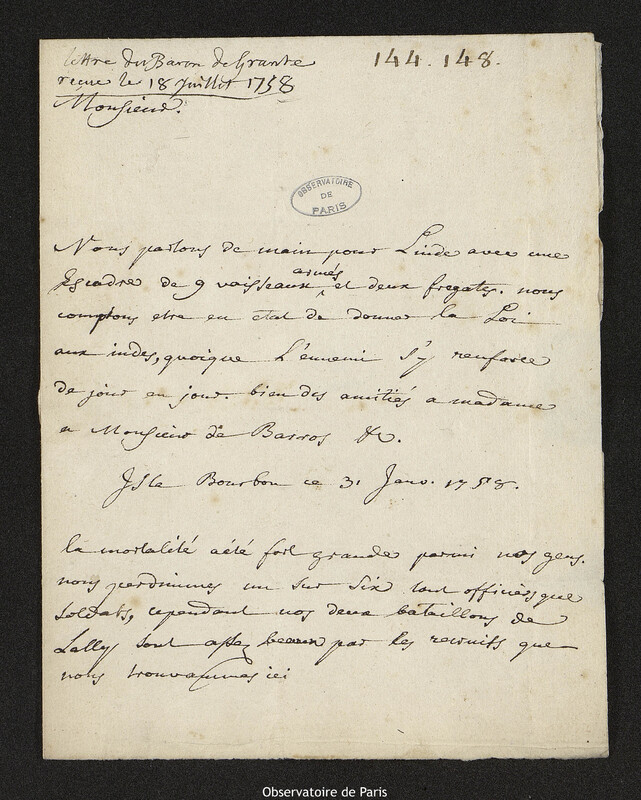 lettre du Baron de Grante
144. 148.
reçue le 18 Juillet 1758
Monsieur.
OBSERVATOIRE
DE
PARIS
Nous partons de main pour Linde avec une
Escadre de 9 vaisseaux armés et deux fregates. nous
comptons etre en état de donner la Loi
aux indes, quoique L'ennemi s'y renforce
de jour en jour. bien des amitiés a madame
a Monsieur de Barros &c.
Isle Bourbon ce 31 Janv. 1758.
la mortalité aété fort grande parmi nos gens.
nous perdimmes un sur six tant officiers que
soldats, cependant nos deux bataillons de
Lally sont assez beaux par les recruits que
nous trouvammes ici
Observatoire de Paris